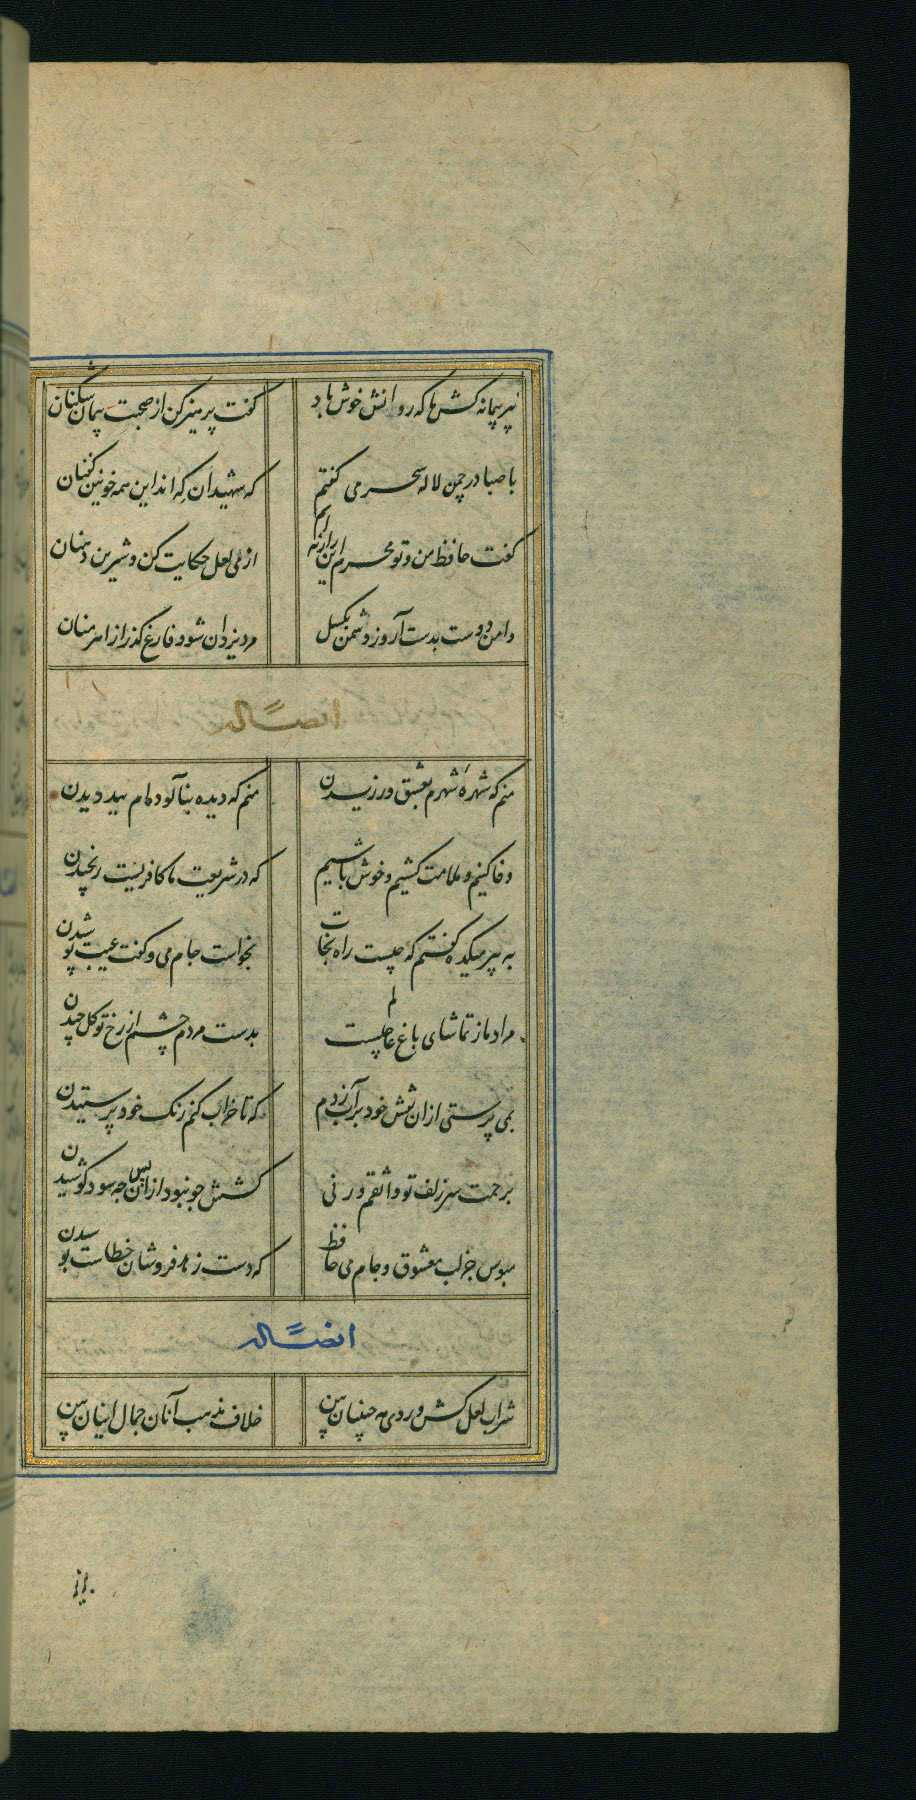 پیر پیمانه کش ما که روانش خوش باد گفت پرهیز کن از صحبت پیمان شکنان
با صبا در چمن لاله سحر می گفتم که شهیدان که اند این همه خونین کفنان
گفت حافظ من و تو محرم این راز نه ایم از می لعل حکایت کن و شیرین دهنان
دامن دوست بدست آر و ز دشمن بکسل مرد یزدان شو و فارغ گذر از اهرمنان
ایضاً له
منم که شهرهٔ شهرم بعشق ورزیدن منم که دیده نیآلوده ام ببد دیدن
وفا کنیم و ملامت کشیم و خوش باشیم که در شریعت ما کافریست رنجیدن
به پیر میکده گفتم که چیست راه نجات بخواست جام می و گفت عیب پوشیدن
مراد ما ز تماشای باغ عالم چیست بدست مردم چشم از رخ تو گل چیدن
بمی پرستی از ان نقش خود بر آب زدم که تا خراب کنم رنگ خود پرستیدن
برحمت سر زلف تو واثقم ور نی کشش چو نبود از این پس چه سود کوشیدن
مبوس جز لب معشوق و جام می حافظ که دست زهد فروشان خطاست بوسیدن
ایضاً له
شراب لعل کش و روی مه جبینان بین خلاف مذهب آنان جمال اینان بین